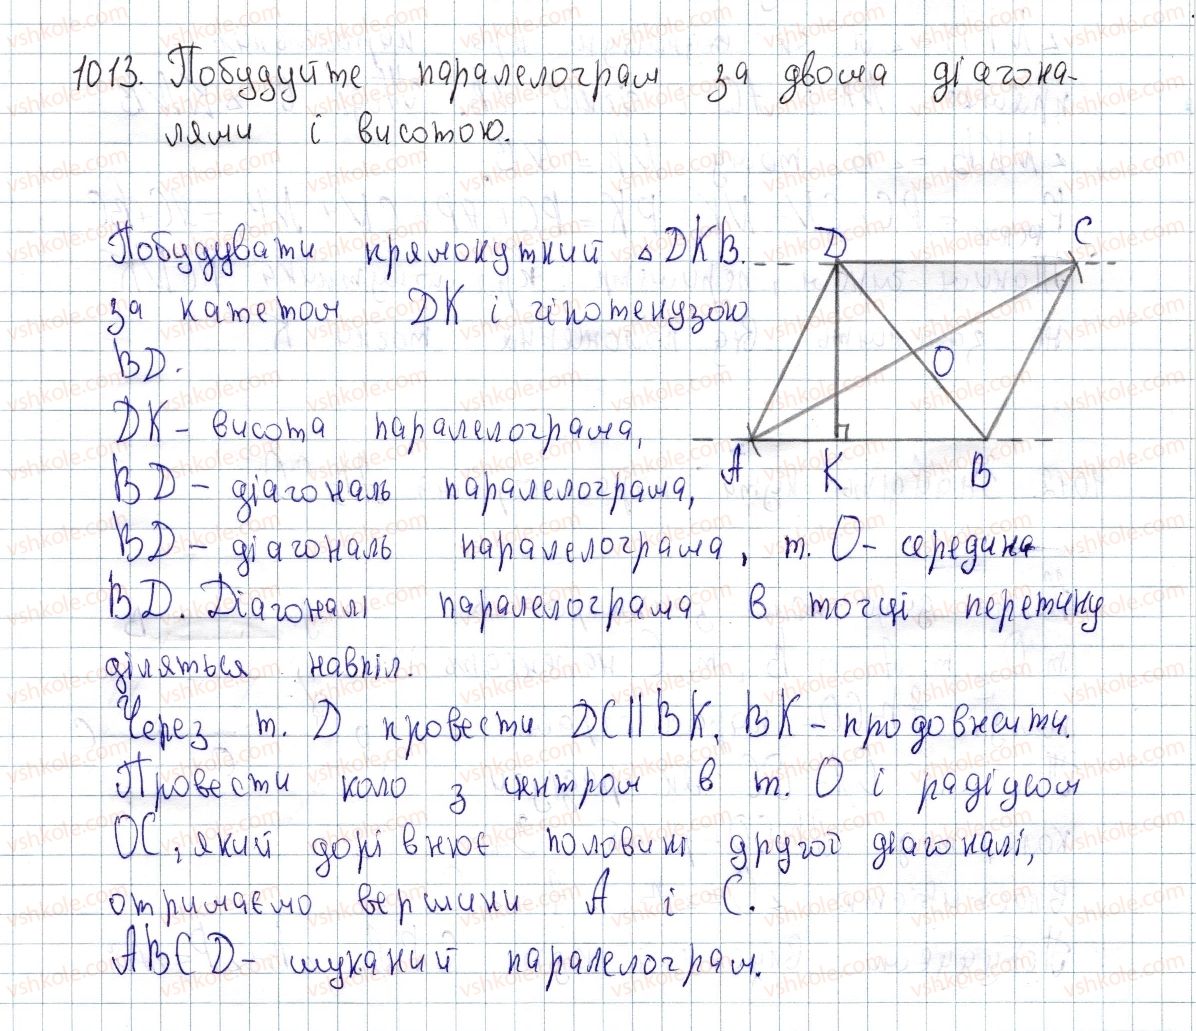 1013. Побудуйте паралелограм за двома діагона-
лями і висотою.
Побудувати прямокутний △DKB.
за катетом DK і гіпотенузою
BD.
DK - висота паралелограма,
BD - діагональ паралелограма,
BD - діагональ паралелограма, т. O - середина
BD. Діагоналі паралелограма в точці перетину
діляться навпіл.
Через т. D провести DC||BK, BK - продовжити.
Провести коло з центром в т. O і радіусом
OC, який дорівнює половині другої діагоналі,
отримаємо вершини A і C.
ABCD - шуканий паралелограм.
D
C
O
A
K
B
vshkole.com